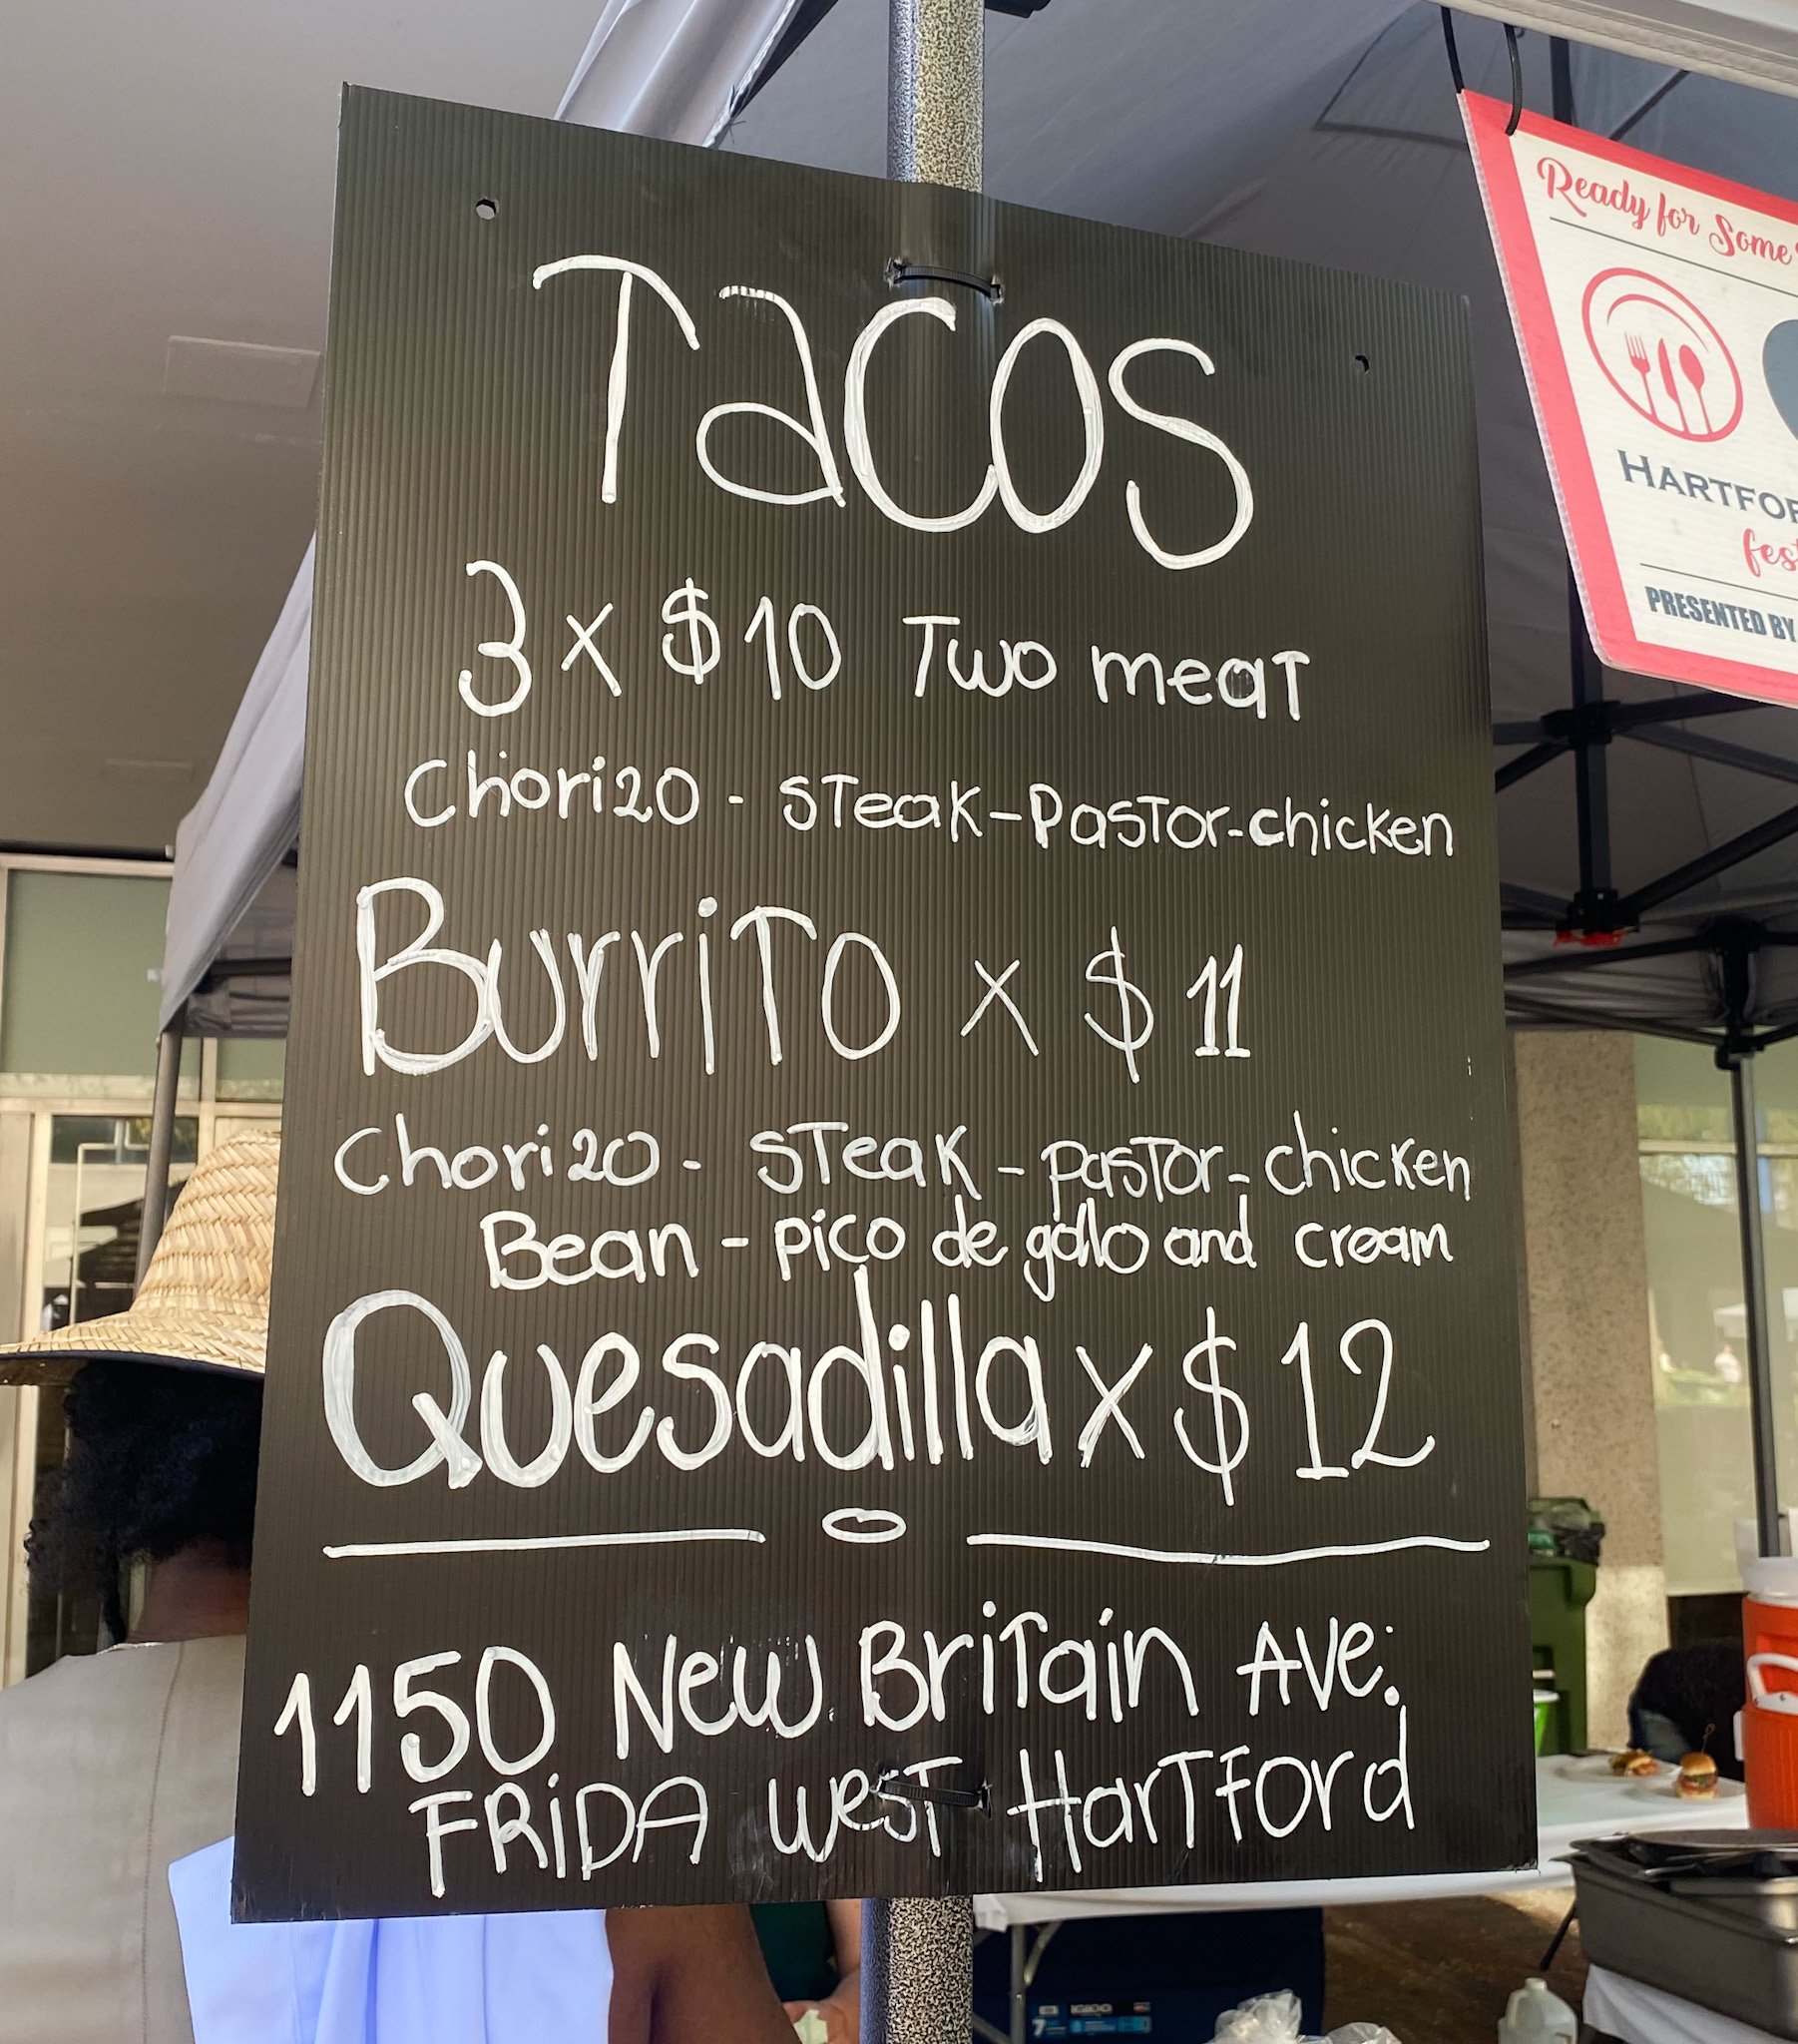 Tacos
3 x $10 Two meat
Chorizo - steak - Pastor - chicken
Burrito x $11
Chorizo - steak - pastor - chicken
Bean - pico de gallo and cream
Quesadilla x $12
1150 New Britain Ave.
FRIDA west Hartford
Ready for Some
HARTFOR
fes
PRESENTED BY